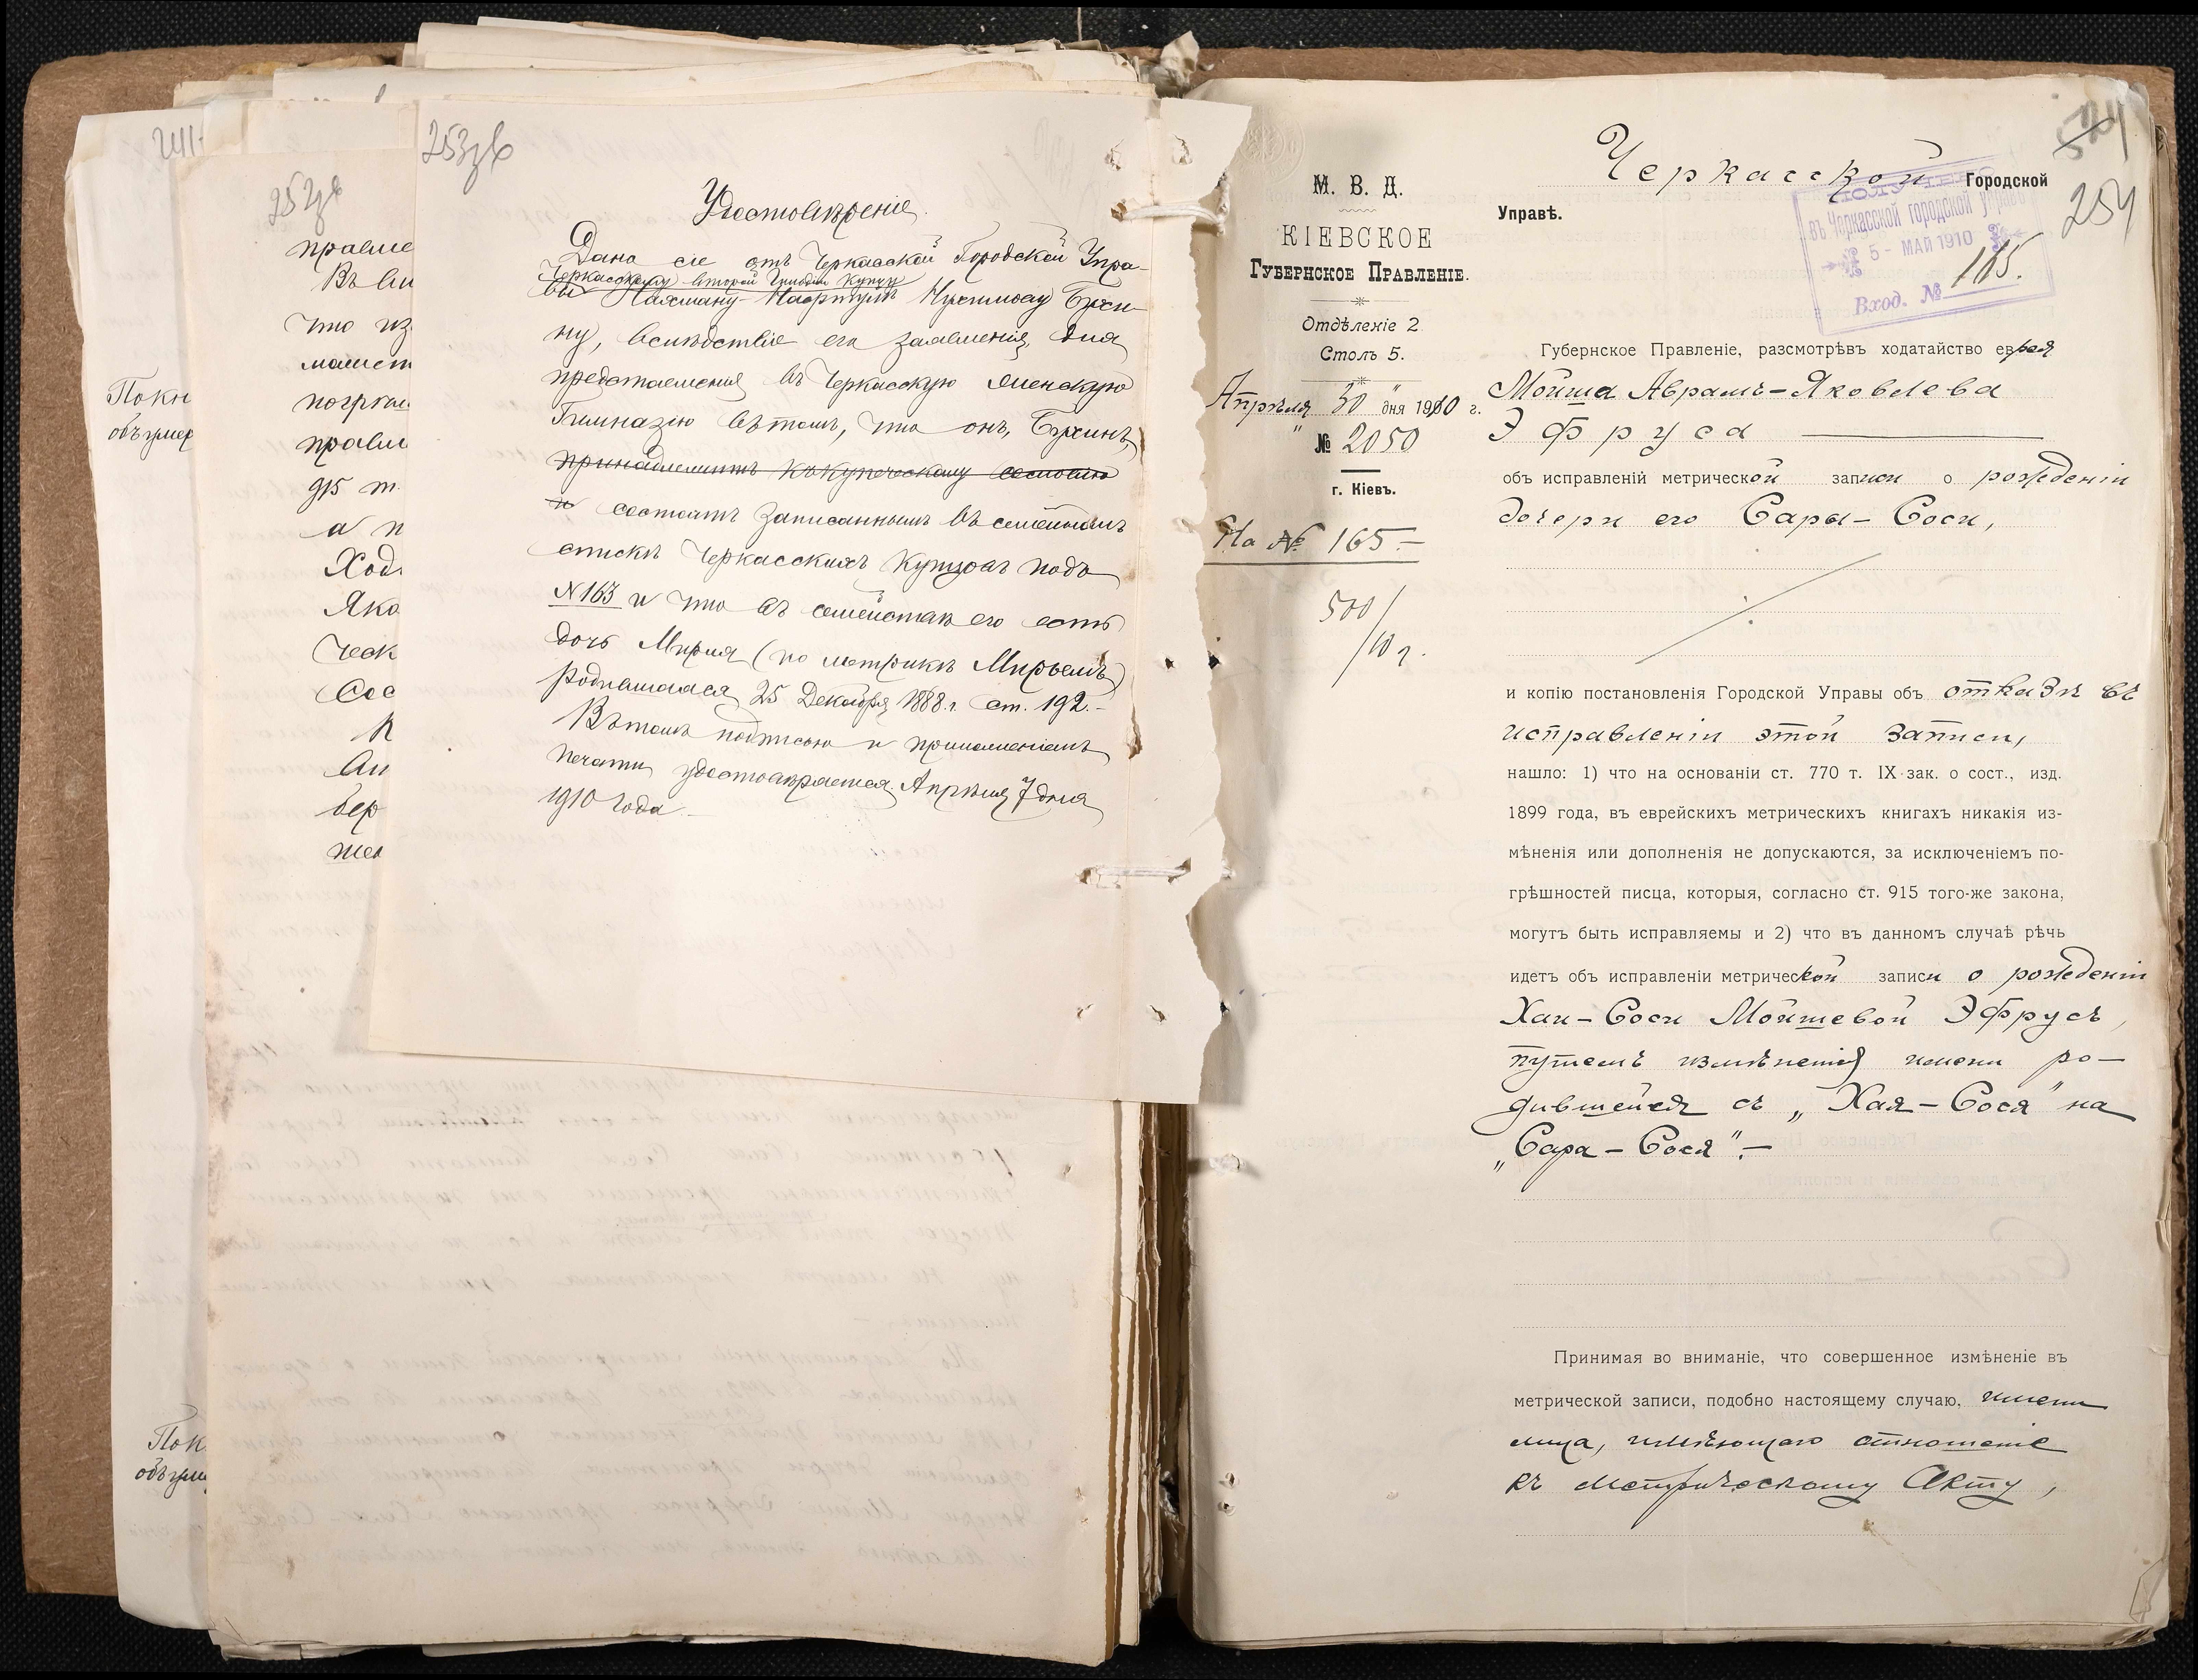 241
252зв
правле
Въ
что из
погрѣш
правл
915 т.
а п
Ход
Яко
Сос
бер
Покн
объ умер
Пок
объ уме
253зв
Удостовѣреніе.
Дано сіе отъ Черкасской Городской Упра-
Черкасскому второй Гильдіи Купцу
вы Нахману-Нафтулѣ Бухи-
ну, вслѣдствіе его заявленія, для
представленія въ Черкасскую женскую
Гимназію въ томъ, что онъ, Бухинъ,
принадлежитъ къ купеческому сословію
и состоитъ записаннымъ въ семейномъ
спискѣ Черкасскихъ Купцовъ подъ
№ 163 и что въ семействѣ его есть
дочь Мирия (по метрикѣ Мирьемъ)
родившаяся 25 Декабря 1888 г. ст. 192.-
Въ томъ подписью и приложеніемъ
печати удостовѣряется. Апрѣля 7 дня
1910 года.-
М. В. Д.
КІЕВСКОЕ
Губернское Правленіе.
Отдѣленіе 2
Столъ 5.
Апрѣля 30 дня 1910 г.
№ 2050
г. Кіевъ.
На № 165.-
500/
/10 г.
524
254
Черкасской Городской
Управѣ.
ПОЛУЧЕНО
въ Черкасской городской управѣ
5 - МАЙ 1910
Вход. № 165.
Губернское Правленіе, разсмотрѣвъ ходатайство еврея
Мойша Аврамъ-Яковлева
Эфруса
объ исправленіи метрической записи о рожденіи
дочери его Сары-Соси,
и копію постановленія Городской Управы объ отказѣ въ
исправленіи этой записи,
нашло: 1) что на основаніи ст. 770 т. IX зак. о сост., изд.
1899 года, въ еврейскихъ метрическихъ книгахъ никакія из-
мѣненія или дополненія не допускаются, за исключеніемъ по-
грѣшностей писца, которыя, согласно ст. 915 того-же закона,
могутъ быть исправляемы и 2) что въ данномъ случаѣ рѣчь
идетъ объ исправленіи метрической записи о рожденіи
Хаи-Соси Мойшевой Эфрусъ,
путемъ измѣненія имени ро-
дившейся съ „Хая-Сося" на
„Сара-Сося".-
Принимая во вниманіе, что совершенное измѣненіе въ
метрической записи, подобно настоящему случаю, имени
лица, имѣющаго отношеніе
къ метрическому акту,